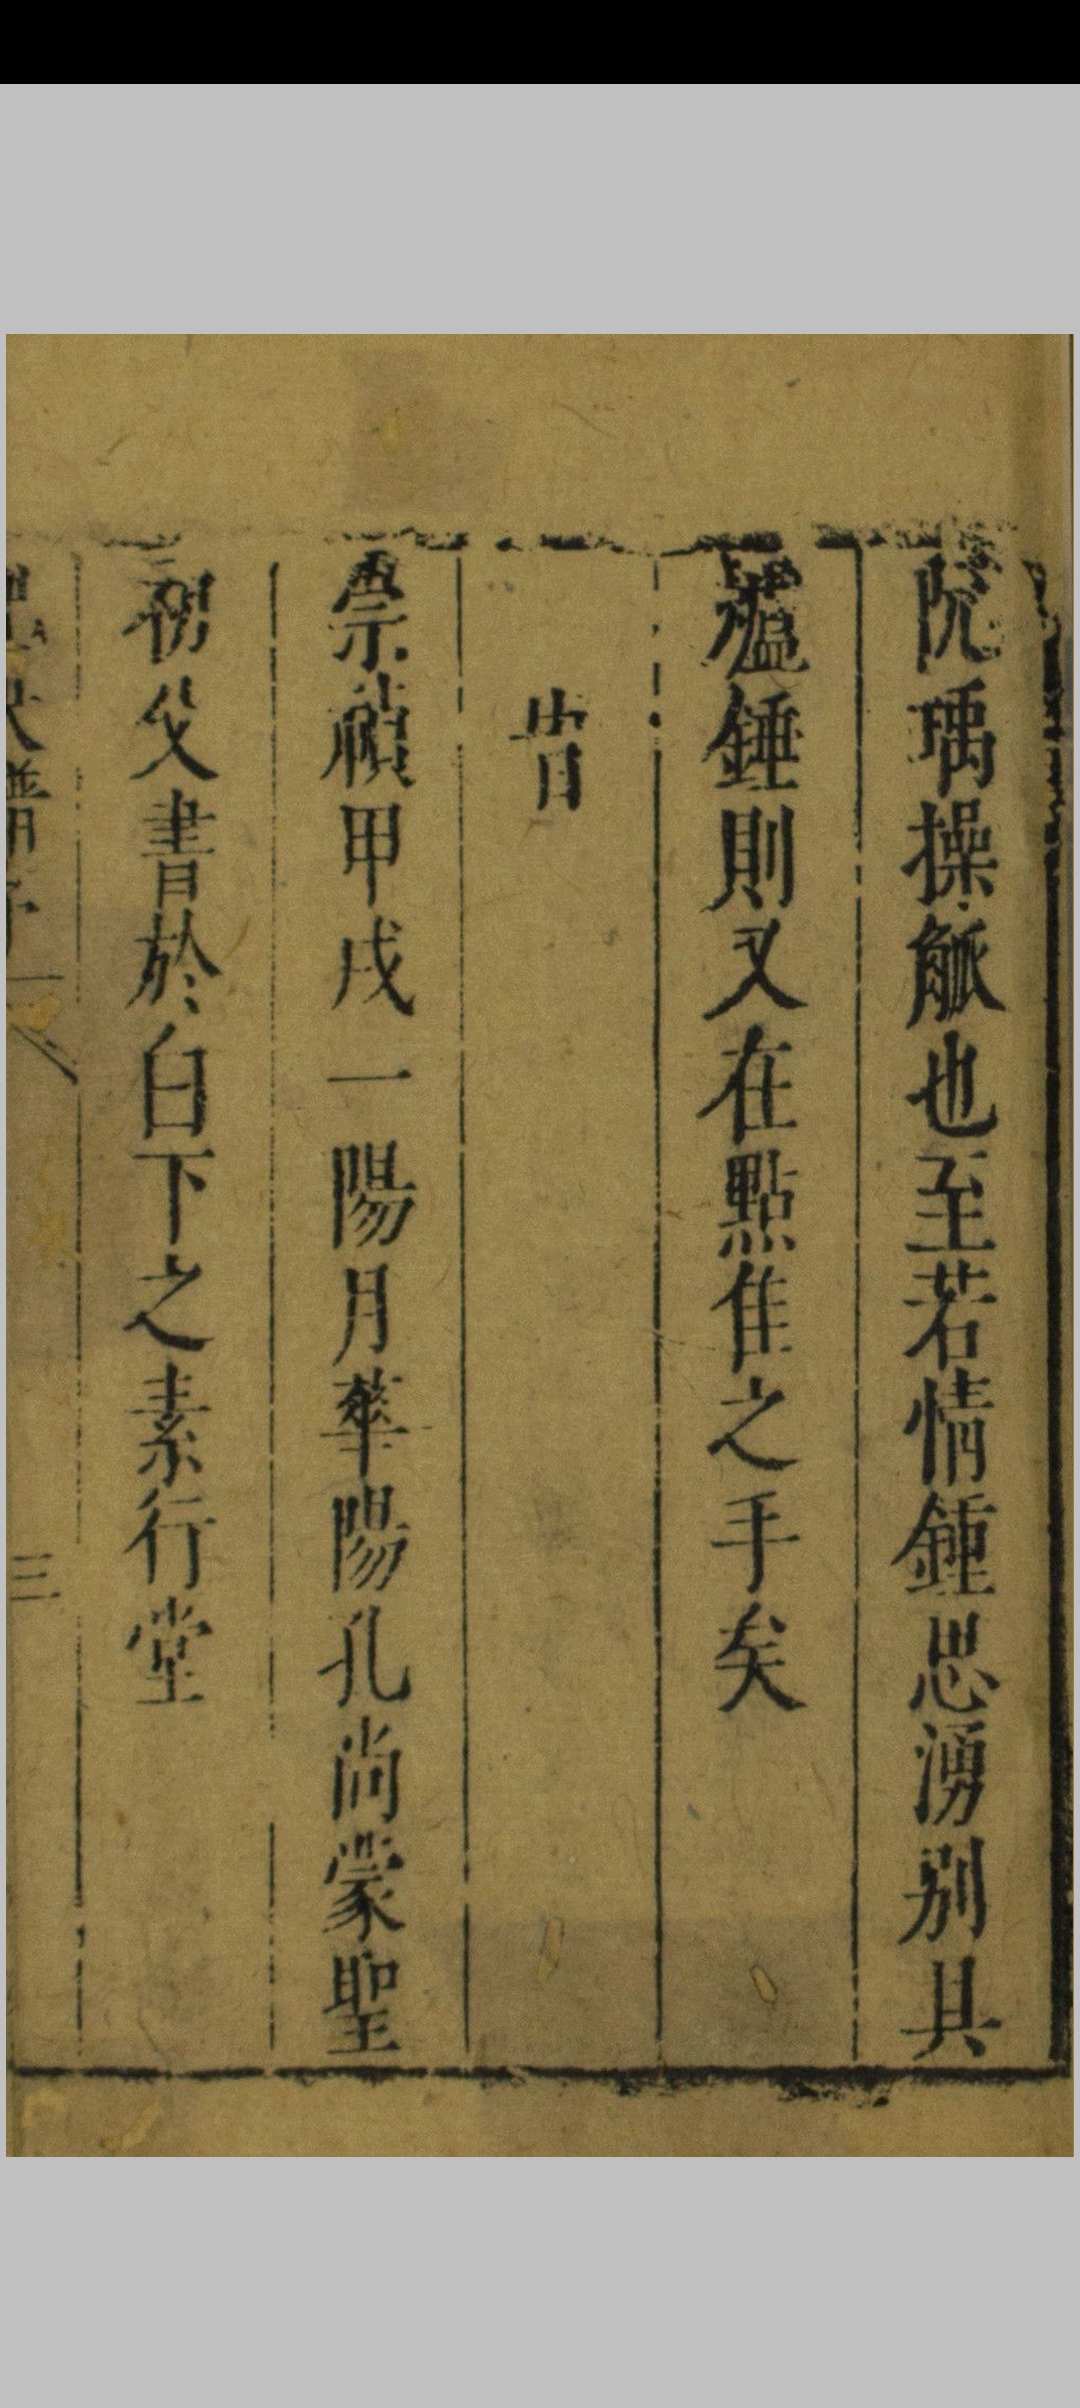 阮瑀操觚也至若情鍾思湧別具
爐錘則又在點隹之手矣
旹
崇禎甲戌一陽月華陽孔尚蒙聖
初父書於白下之素行堂
譜序
三